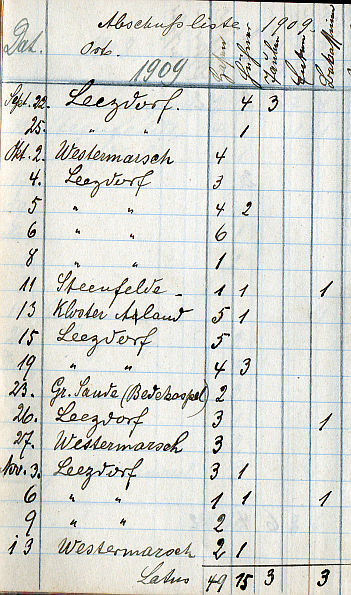 Abschußliste 1909.
Dat. Ort. Hühner Tauben Enten Bekassinen
1909
Sept. 22. Leezdorf. 4 3
25. " " 1
Okt. 2. Westermarsch 4
4. Leezdorf 3
5 " " 4 2
6 " " 6
8 " " 1
11 Steenfelde - 1 1 1
13 Kloster Aland 5 1
15 Leezdorf 5
19 " " 4 3
23. Gr. Sande (Bedekaspel) 2
26. Leezdorf 3 1
27. Westermarsch 3
Nov. 3. Leezdorf 3 1
6 " " 1 1 1
9 " " 2
13 Westermarsch 2 1
Latus 49 15 3 3